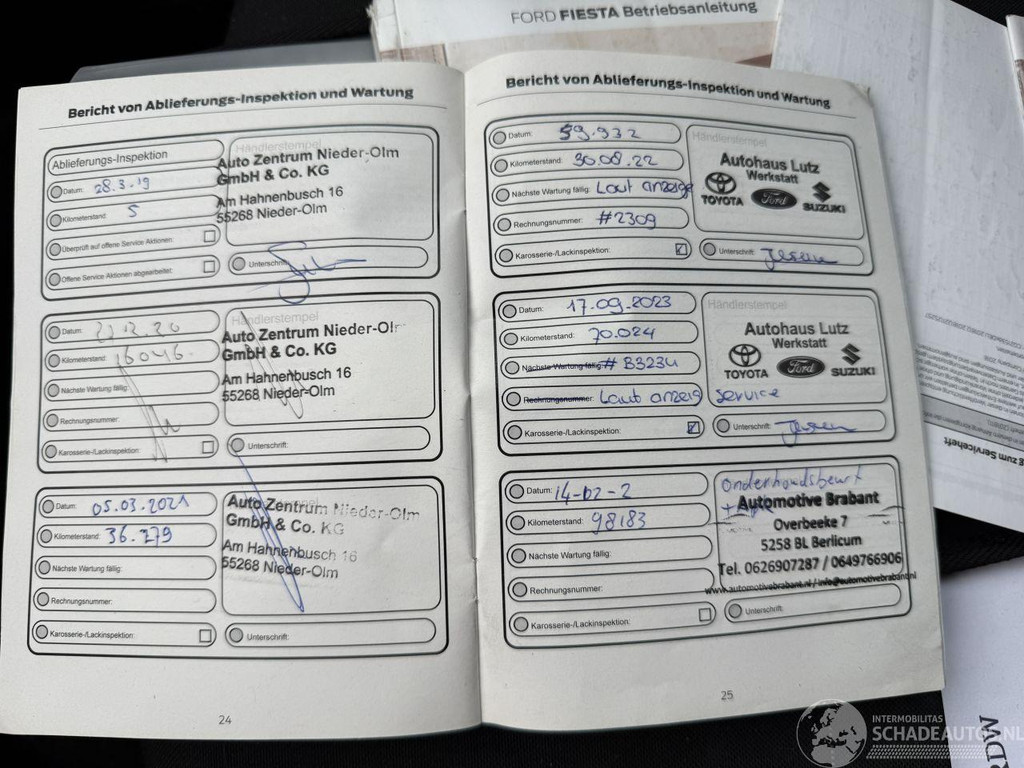 FORD FIESTA Betriebsanleitung
Bericht von Ablieferungs-Inspektion und Wartung
Ablieferungs-Inspektion
Datum: 28.3.19
Kilometerstand: 5
Überprüft auf offene Service Aktionen:
Offene Service Aktionen abgearbeitet:
Händlerstempel
Auto Zentrum Nieder-Olm
GmbH & Co. KG
Am Hahnenbusch 16
55268 Nieder-Olm
Unterschrift:
Datum: 12.20
Kilometerstand: 16046.
Nächste Wartung fällig:
Rechnungsnummer:
Karosserie-/Lackinspektion:
Händlerstempel
Auto Zentrum Nieder-Olm
GmbH & Co. KG
Am Hahnenbusch 16
55268 Nieder-Olm
Unterschrift:
Datum: 05.03.2021
Kilometerstand: 36.279
Nächste Wartung fällig:
Rechnungsnummer:
Karosserie-/Lackinspektion:
Auto Zentrum Nieder-Olm
GmbH & Co. KG
Am Hahnenbusch 16
55268 Nieder-Olm
Unterschrift:
24
Bericht von Ablieferungs-Inspektion und Wartung
Datum: 59.932
Kilometerstand: 30.08.22
Nächste Wartung fällig: Laut anzeige
Rechnungsnummer: #2309
Karosserie-/Lackinspektion:
Händlerstempel
Autohaus Lutz
Werkstatt
TOYOTA Ford SUZUKI
Unterschrift:
Datum: 17.09.2023
Kilometerstand: 70.024
Nächste Wartung fällig: # B3234
Rechnungsnummer: Laut anzeig service
Karosserie-/Lackinspektion:
Händlerstempel
Autohaus Lutz
Werkstatt
TOYOTA Ford SUZUKI
Unterschrift:
Datum: 14-02-2
Kilometerstand: 98183
Nächste Wartung fällig:
Rechnungsnummer:
Karosserie-/Lackinspektion:
onderhoudsbeurt
Automotive Brabant
Overbeeke 7
5258 BL Berlicum
Tel. 0626907287 / 0649766906
www.automotivebrabant.nl / info@automotivebrabant.nl
Unterschrift:
25
ng zum Serviceheft
INTERMOBILITAS
SCHADEAUTOS.NL